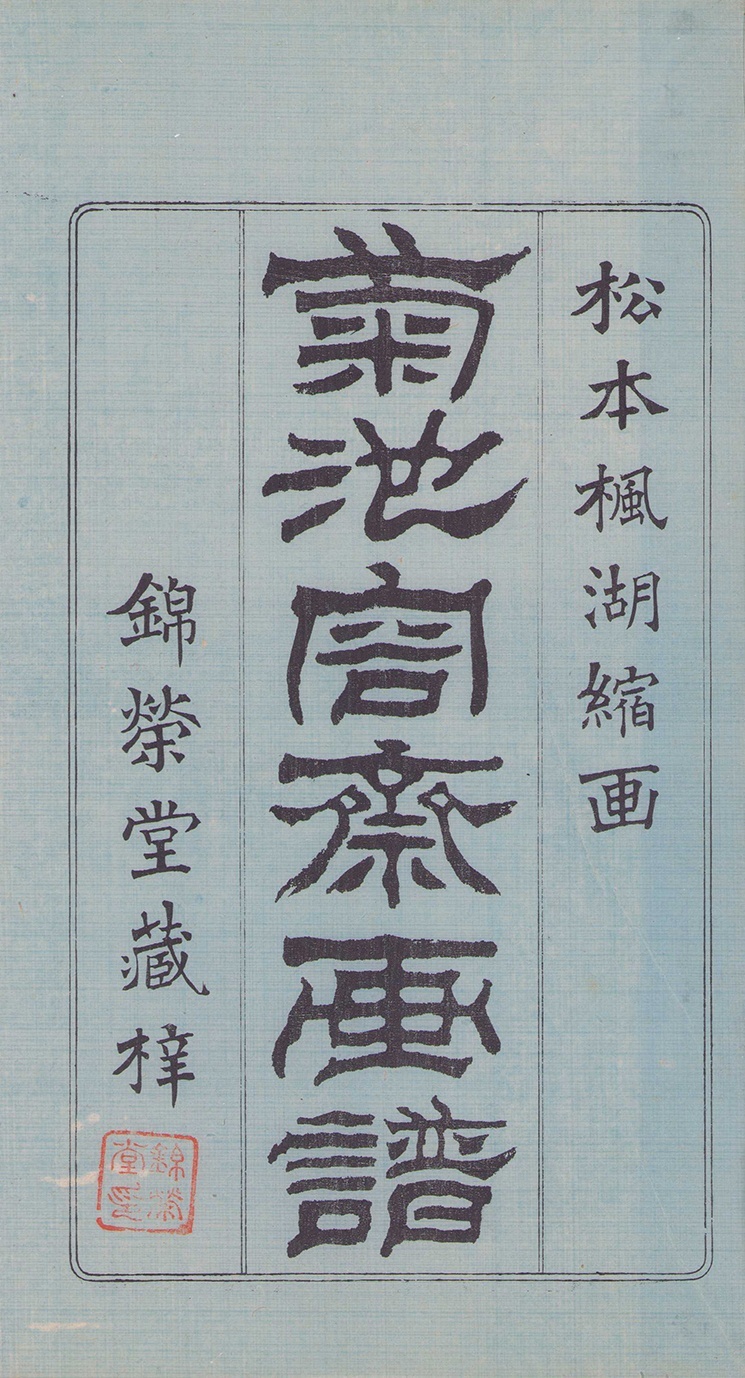 松本楓湖縮画
菊池容斎画譜
錦榮堂藏梓
錦榮堂印